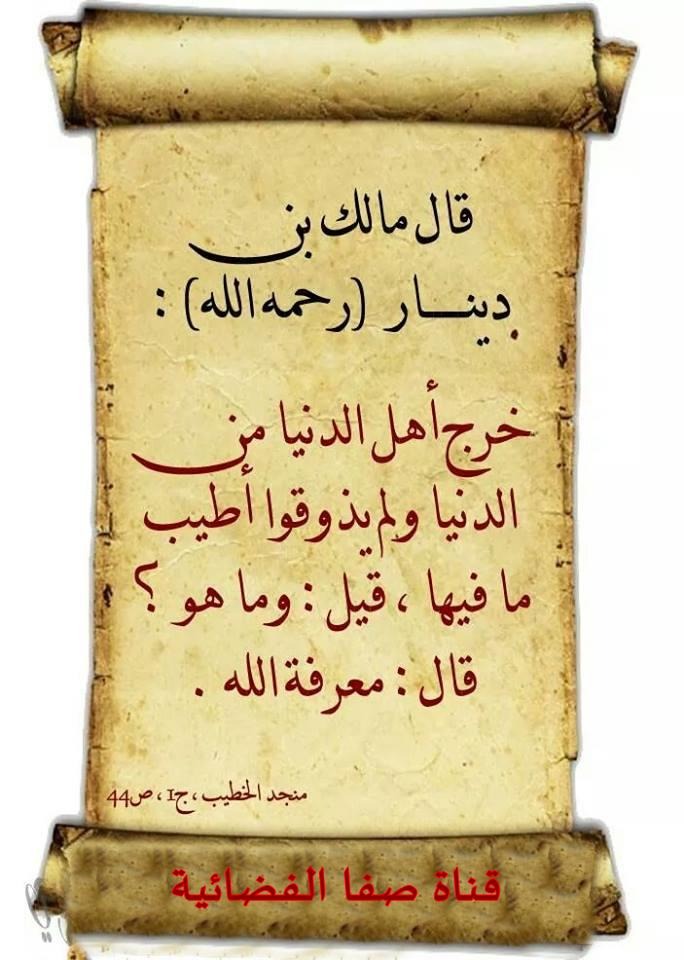 قال مالك بن
دينـــار (رحمه الله) :
خرج أهل الدنيا من
الدنيا ولم يذوقوا أطيب
ما فيها ، قيل : وما هو ؟
قال : معرفة الله .
منجد الخطيب ، ج1 ، ص44
قناة صفا الفضائية